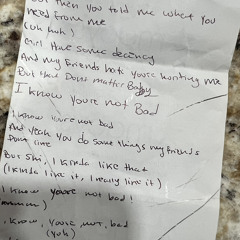 then you told me what you
need from me
(uh huh)
Girl that some decency
And my friends hate you're hanting me
But that Dont matter Baby
I know you're not Bad
I know you're not bad
And yeah you do some things my friends
Dont like
But Shi, I kinda like that
(I kinda like it, I really like it)
I know you're not bad!
I know, you're, not, bad
(yuh)